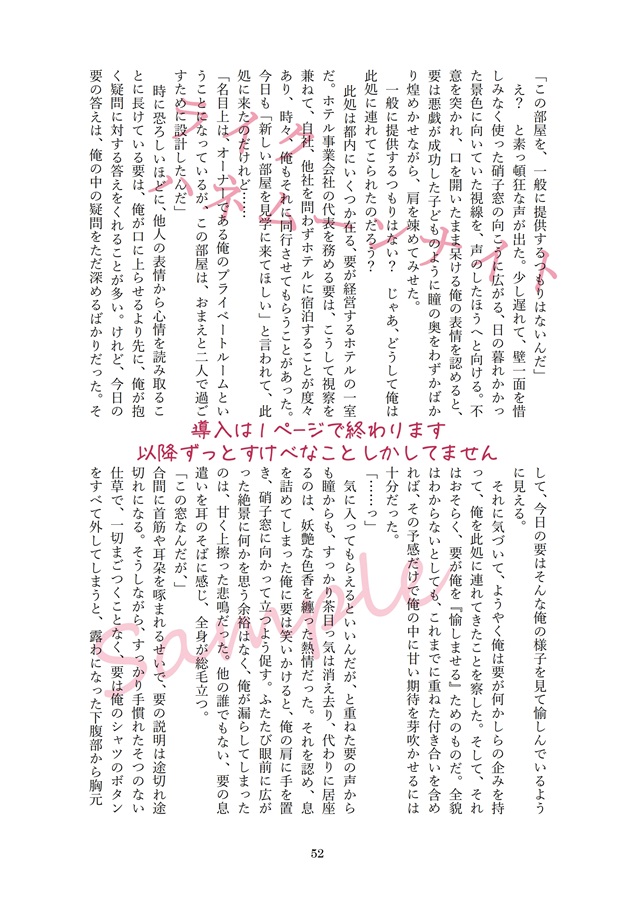 「この部屋を、一般に提供するつもりはないんだ」
え？　と素っ頓狂な声が出た。少し遅れて、壁一面を惜
しみなく使った硝子窓の向こうに広がる、日の暮れかかっ
た景色に向いていた視線を、声のしたほうへと向ける。不
意を突かれ、口を開いたまま呆ける俺の表情を認めると、
要は悪戯が成功した子どものように瞳の奥をわずかばか
り煌めかせながら、肩を竦めてみせた。
一般に提供するつもりはない？　じゃあ、どうして俺は
此処に連れてこられたのだろう？
此処は都内にいくつか在る、要が経営するホテルの一室
だ。ホテル事業会社の代表を務める要は、こうして視察を
兼ねて、自社、他社を問わずホテルに宿泊することが度々
あり、時々、俺もそれに同行させてもらうことがあった。
今日も「新しい部屋を見学に来てほしい」と言われて、此
処に来たのだけれど……
「名目上は、オーナーである俺のプライベートルームとい
うことになっているが、この部屋は、おまえと二人で過ご
すために設計したんだ」
時に恐ろしいほどに、他人の表情から心情を読み取るこ
とに長けている要は、俺が口に上らせるより先に、俺が抱
く疑問に対する答えをくれることが多い。けれど、今日の
要の答えは、俺の中の疑問をただ深めるばかりだった。そ
ハネムーンスイート
導入は1ページで終わります
以降ずっとすけべなことしかしてません
して、今日の要はそんな俺の様子を見て愉しんでいるよう
に見える。
それに気づいて、ようやく俺は要が何かしらの企みを持
って、俺を此処に連れてきたことを察した。そして、それ
はおそらく、要が俺を『愉しませる』ためのものだ。全貌
はわからないとしても、これまでに重ねた付き合いを含め
れば、その予感だけで俺の中に甘い期待を芽吹かせるには
十分だった。
「……っ」
気に入ってもらえるといいんだが、と重ねた要の声から
も瞳からも、すっかり茶目っ気は消え去り、代わりに居座
るのは、妖艶な色香を纏った熱情だった。それを認め、息
を詰めてしまった俺に要は笑いかけると、俺の肩に手を置
き、硝子窓に向かって立つよう促す。ふたたび眼前に広が
った絶景に何かを思う余裕はなく、俺が漏らしてしまった
のは、甘く上擦った悲鳴だった。他の誰でもない、要の息
遣いを耳のそばに感じ、全身が総毛立つ。
「この窓なんだが、」
合間に首筋や耳朶を啄まれるせいで、要の説明は途切れ途
切れになる。そうしながら、すっかり手慣れたそつのない
仕草で、一切まごつくことなく、要は俺のシャツのボタン
をすべて外してしまうと、露わになった下腹部から胸元
Sample
52